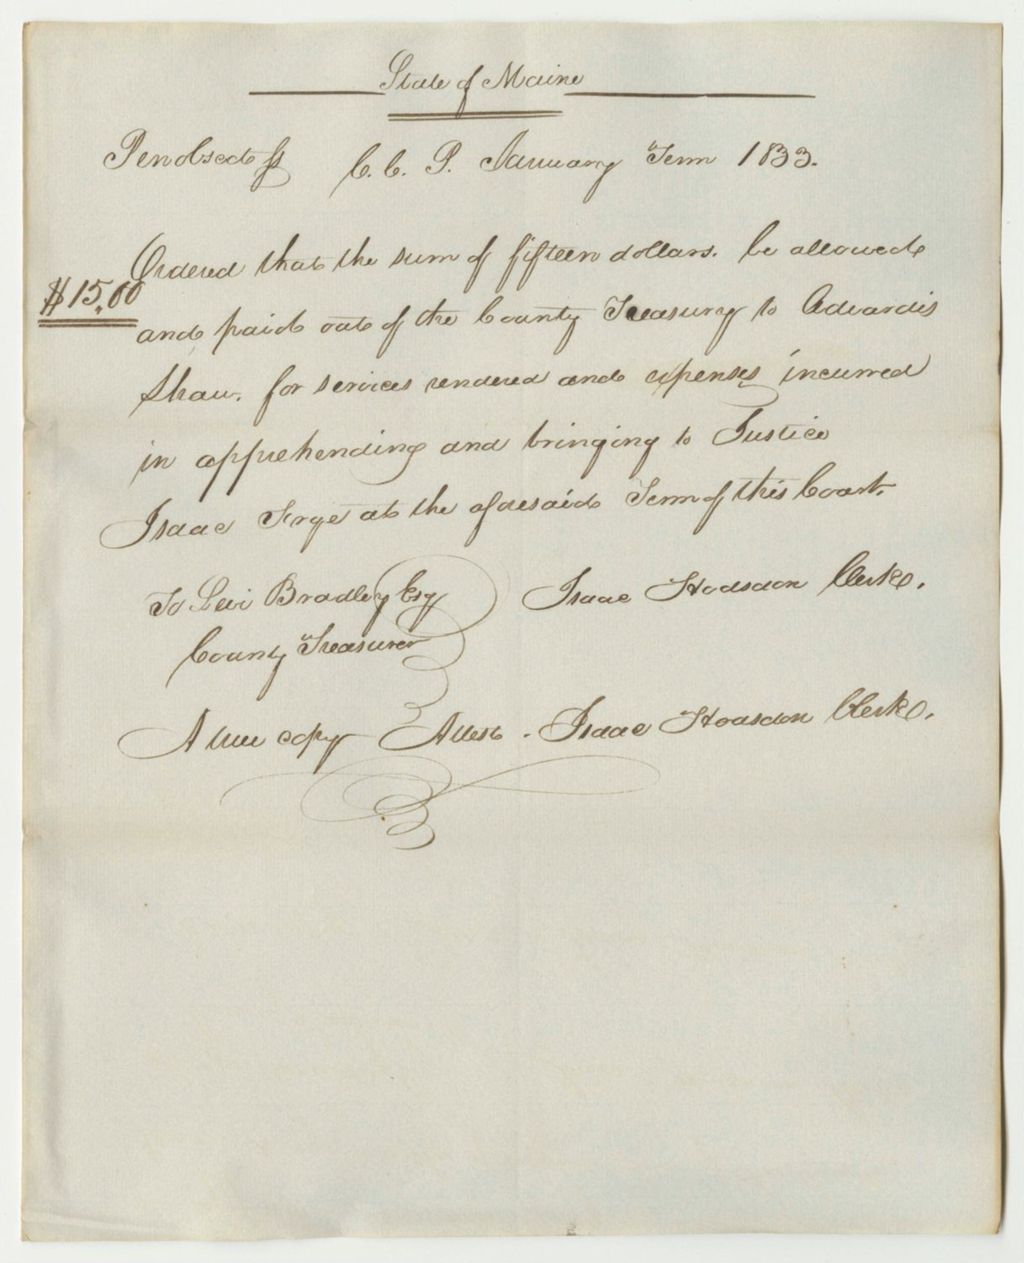 State of Maine
Penobscot ss C. C. P. January Term 1833.
Ordered that the sum of fifteen dollars. be allowed
$15,00
and paid out of the County Treasury to Advardis
Shaw. for services rendered and expenses incurred
in apprehending and bringing to Justice
Isaac Frye at the aforesaid Term of this Court.
To Levi Bradley Esq Isaac Hodsdon Clerk.
County Treasurer
A true copy Attest. Isaac Hodsdon Clerk.